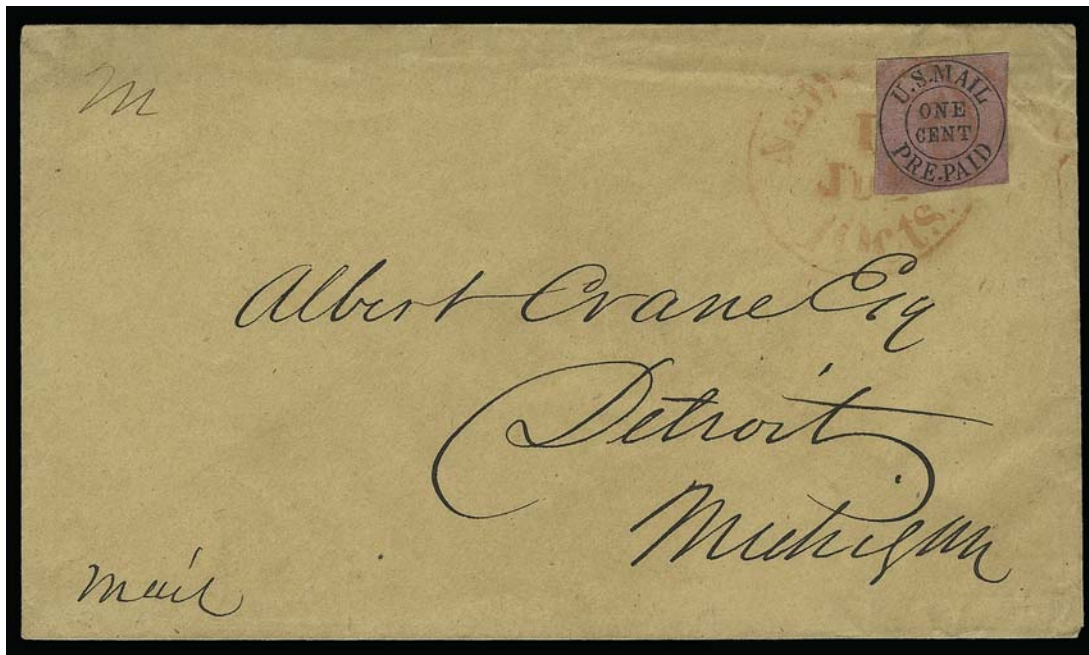 M
U.S.MAIL
ONE
CENT
PRE-PAID
NEW
JU
10cts.
Albert Crane Esq
Detroit
Michigan
Mail